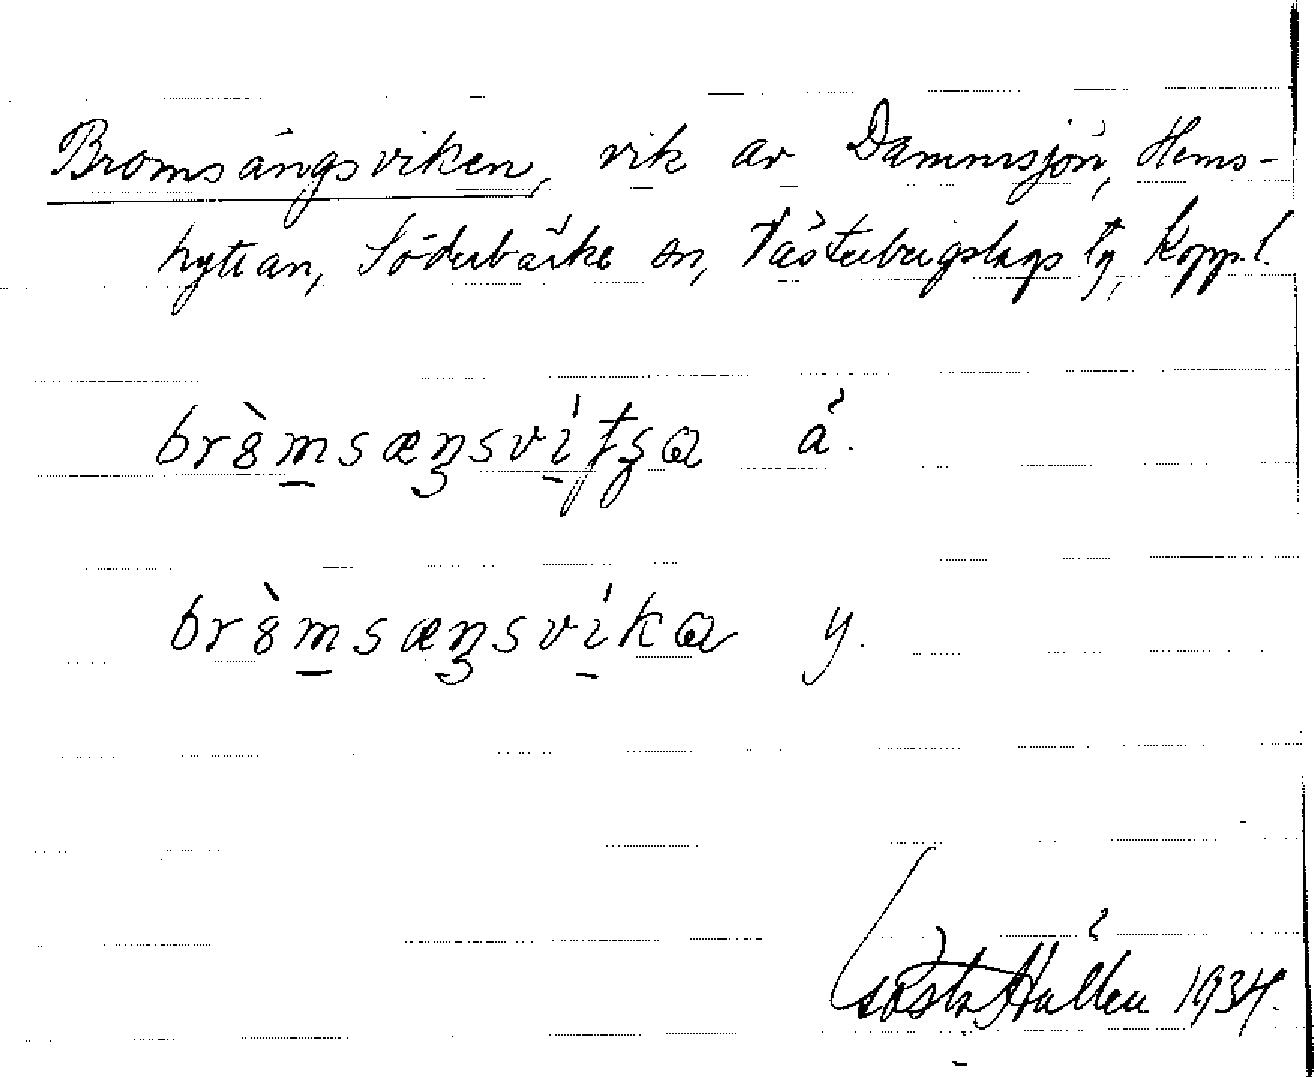 Bromsängsviken, vik av Dammsjön, Hems-
hyttan, Söderbärke sn, Västerbergslags tg, Kopp. l.
brò̀msæŋsvítʂa ä.
brò̀msæŋsvíka y.
Gösta Hallén 1934.